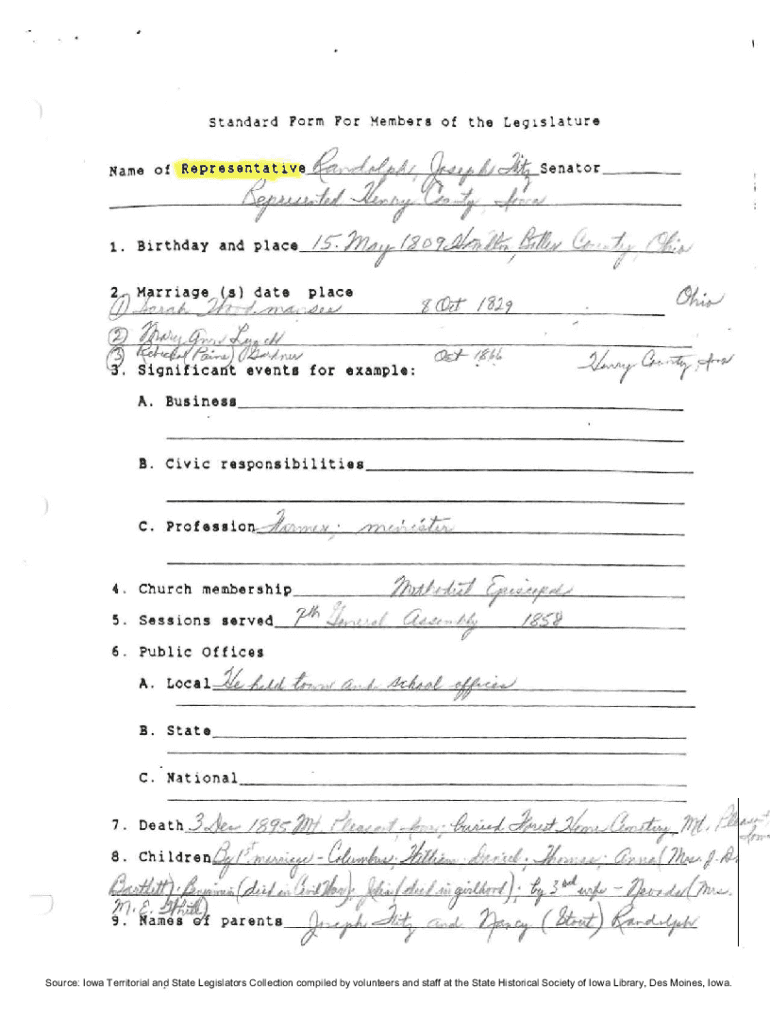 Standard Form For Members of the Legislature
Name of Representative Randolph, Joseph Fitz Senator
Represented Henry County, Iowa
1. Birthday and place 15. May 1809 Hamilton, Butler County, Ohio
2. Marriage (s) date place
(1) Sarah Woodmansee 8 Oct 1829 Ohio
(2) Mary Ann Lynch
(3) Rebecka (Paine) Gardner Oct 1866 Henry County, Iowa
3. Significant events for example:
A. Business
B. Civic responsibilities
C. Profession Farmer; minister
4. Church membership Methodist Episcopal
5. Sessions served 7th General Assembly 1858
6. Public Offices
A. Local He held town and school offices
B. State
C. National
7. Death 3 Dec 1895 Mt. Pleasant, Iowa; buried Forest Home Cemetery, Mt. Pleasant, Iowa
8. Children By 1st marriage - Columbus; William; Daniel; Thomas; Anna (Mrs. J. D.
Bartlett); Benjamin (died in Civil War); (died in girlhood); by 3rd wife - Nevada (Mrs.
M. E.
9. Names of parents Joseph Fitz and Nancy (Stout) Randolph
Source: Iowa Territorial and State Legislators Collection compiled by volunteers and staff at the State Historical Society of Iowa Library, Des Moines, Iowa.